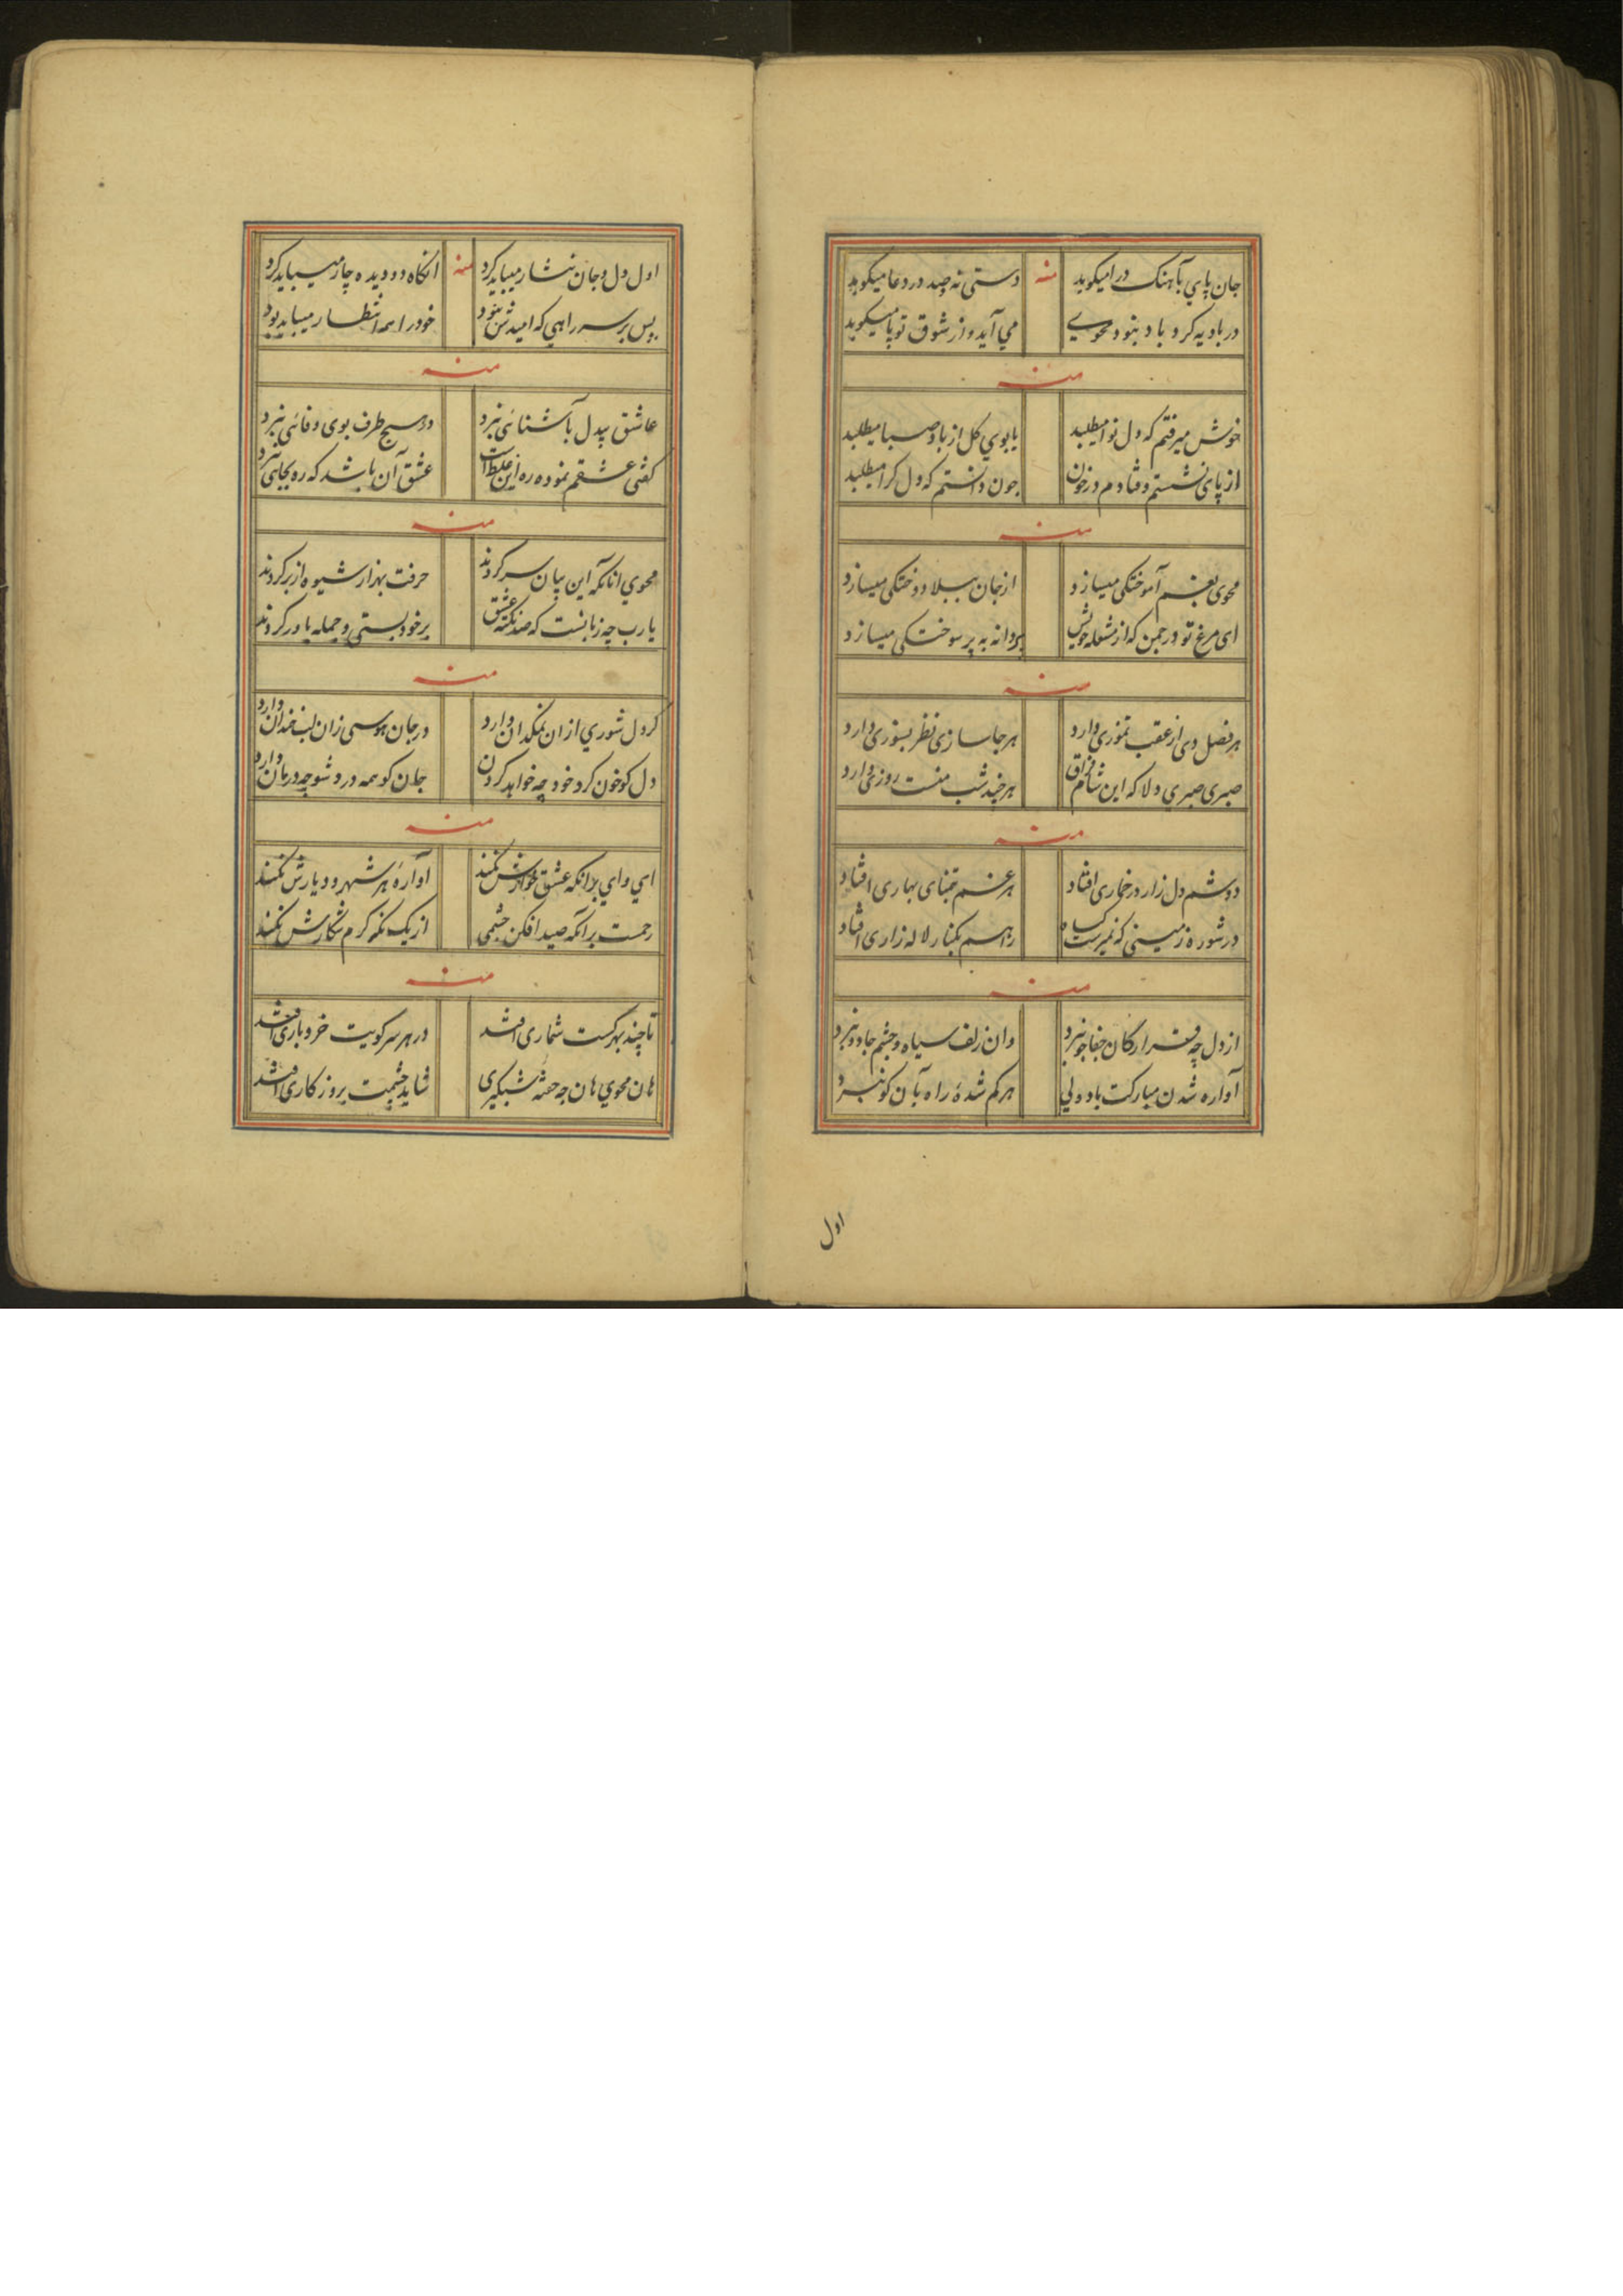 جان پاي بآهنک درا میکوبد منه دستی نه وصد در دعا میکوبد
در بادیه کرد باد نبود محویے مي آید و از شوق تو پا میکوبد
منه
خوش میرفتم که دل نوا میطلبد یا بوي کل از باد صبا میطلبد
از پای نشستم و فتادم در خون چون دانستم که دل کرا میطلبد
منه
محوی بغم آموختکی میسازد از جان ببلا دوختکی میسازد
ای مرغ تو در چمن که از شعله خویش پروانه به پر سوختکی میسازد
منه
هر فصل دی از عقب تموزی دارد هر جا سازی نظر بسوزی دارد
صبری صبري دلا که این شام فراق هر چند شبست روزی دارد
منه
دوشم دل زار در خماری افتاد هر غم تمنای بهاری افتاد
در شوره زمینی که نمیرست کیاه راهم بکنار لاله زاری افتاد
منه
از دل چه قرار کان جفاجو نبرد وان زلف سیاه و چشم جادو نبرد
آواره شدن مبارکت باد ولي هر کم شدهٔ راه بآن کو نبرد
اول
اول دل و جان نثار میباید کرد منه آنکاه دو دیده چار میباید کرد
پس بر سر راهي که امیدش نبود خود را همه انتظار میباید بود
منه
عاشق بیدل بآشنائی نبرد وز هیچ طرف بوی وفائی نبرد
کفتی عشقم نموده ره این غلط است عشق آن باشد که ره بجایی نبرد
منه
محوي انانکه این بیان سر کردند حرفت بهزار شیوه از بر کردند
یا رب چه زبانست که صد نکته عشق بر خود بستی و جمله باور کردند
منه
کر دل شوري از آن نمکدان دارد در جان هوسی زان لب خندان دارد
دل کو خون کرد خود چه خواهد کردن جان کو همه درد شو چه درمان دارد
منه
اي واي برانکه عشق خوارش نکند آوارهٔ هر شهر و دیارش نکند
رحمت برانکه صید افکن چشمی از یک نکه کرم شکارش نکند
منه
تا چند بهر کست شماری افتد در هر سر کویت خر و باری افتد
هان محوي هان چه خفتهٔ شبکیری شاید چشمت بروزکاری افتد